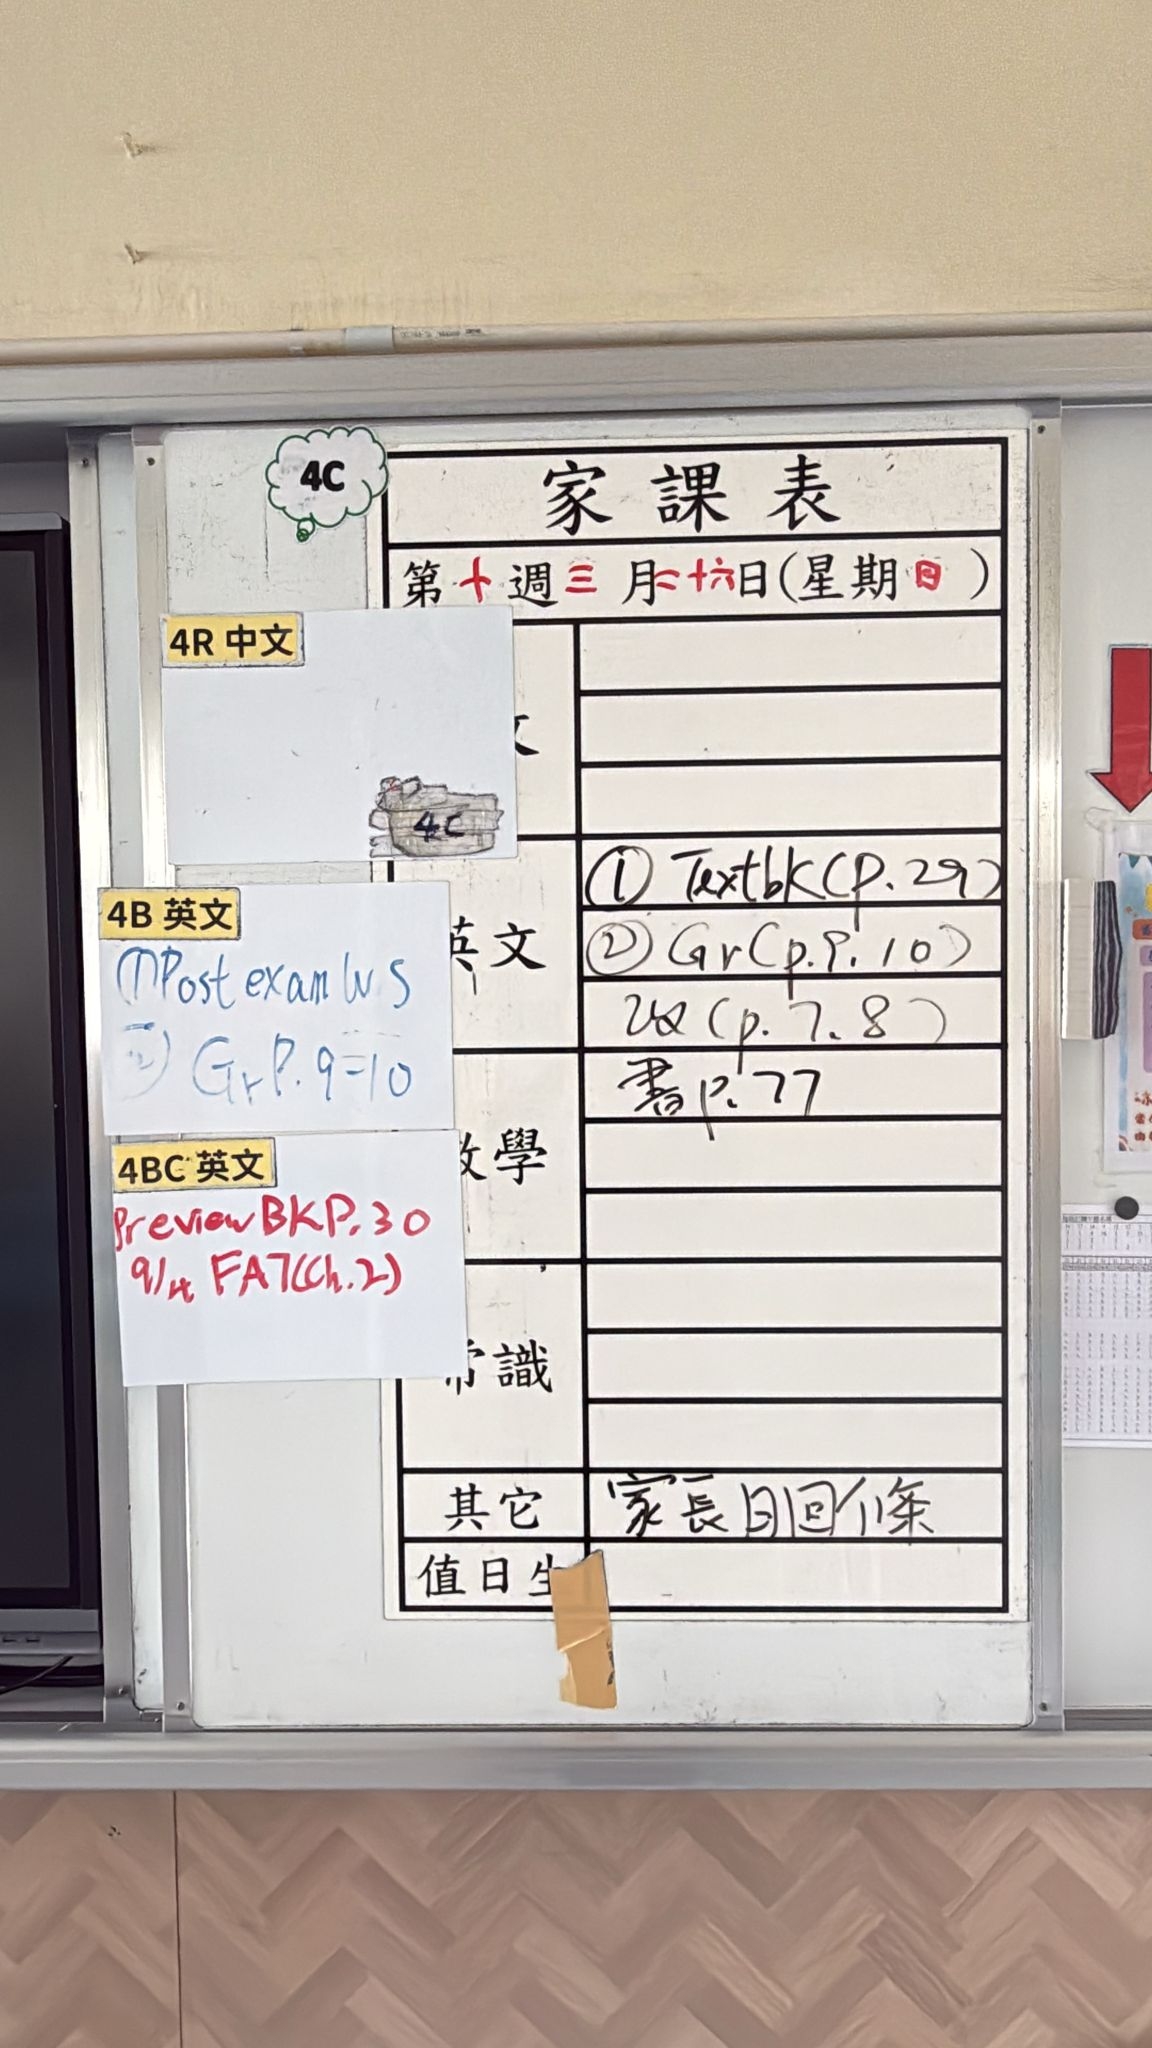 4C
家課表
第十週三月二十六日(星期日)
4R 中文
4C
文
英文
① Textbk(p.29)
② Gr(p.9.10)
改(p.7.8)
4B 英文
① Post exam W.S
② Gr P.9-10
數學
書p.77
4BC 英文
Preview BK P.30
9/4 FA7(Ch.2)
常識
其它
家長日回條
值日生